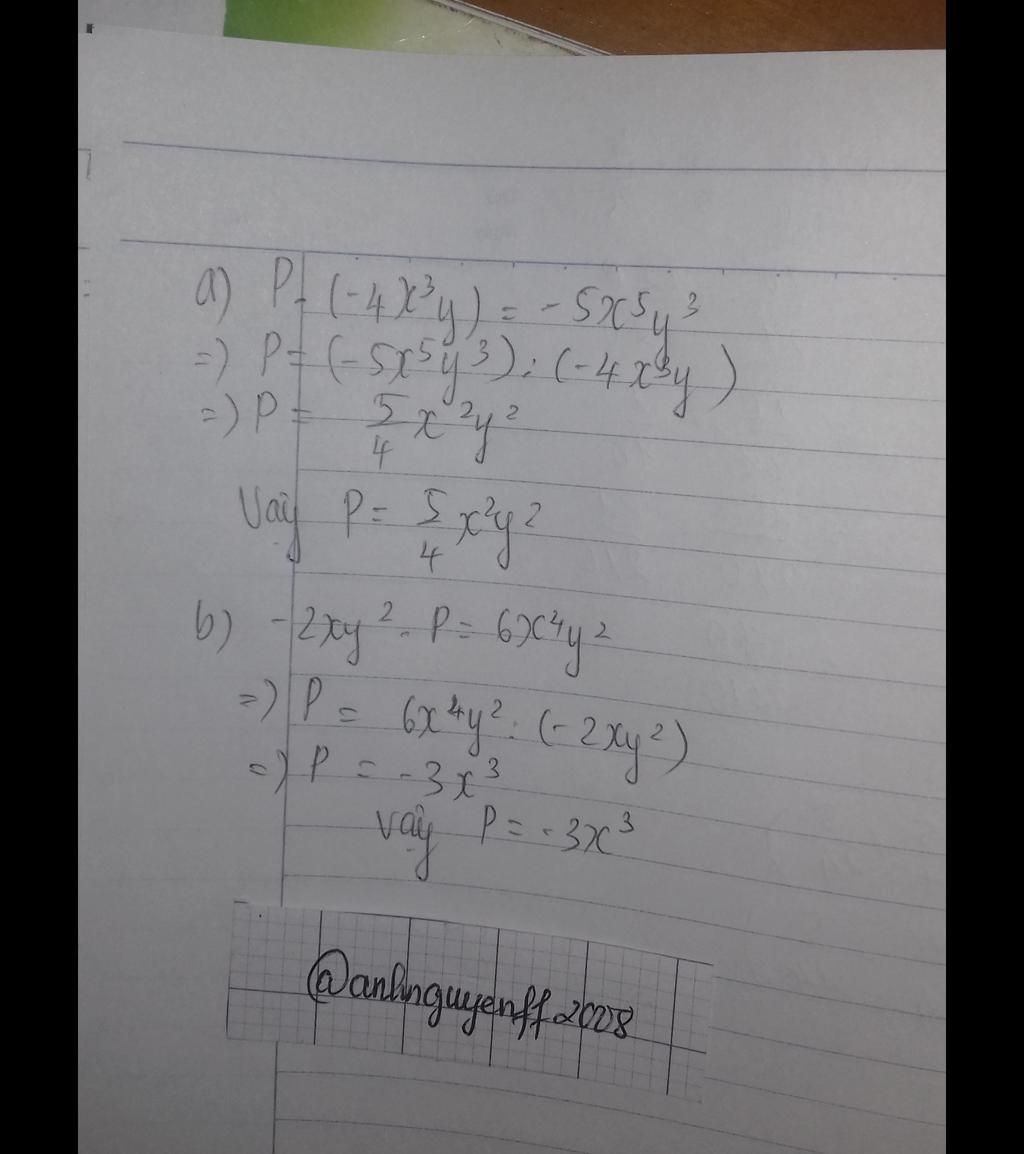 a) P. (-4x³y) = -5x⁵y³
=) P = (-5x⁵y³) : (-4x³y)
=) P = 5/4 x²y²
Vậy P = 5/4 x²y²
b) -2xy² . P = 6x⁴y²
=) P = 6x⁴y² : (-2xy²)
=) P = -3x³
Vậy P = -3x³
@anhnguyenff2008